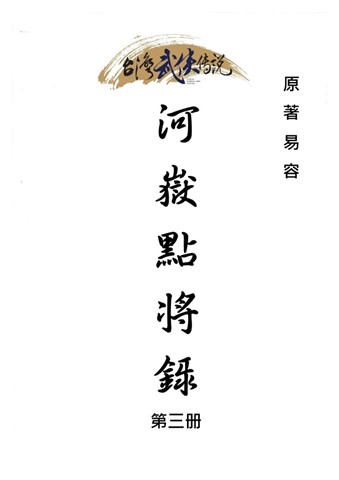 台灣武俠傳説
原著易容
河嶽點將錄
第三册